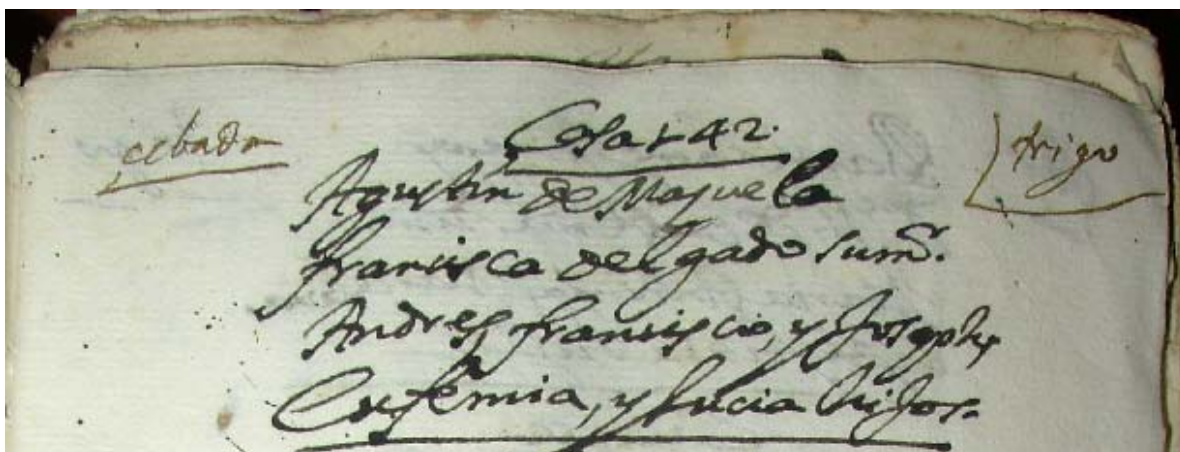 cebada
Casa 42.
trigo
Agustin de Mazuela
francisca delgado su mr.
Andres francisco, y Joseph,
Eufemia, y Lucia hijos.